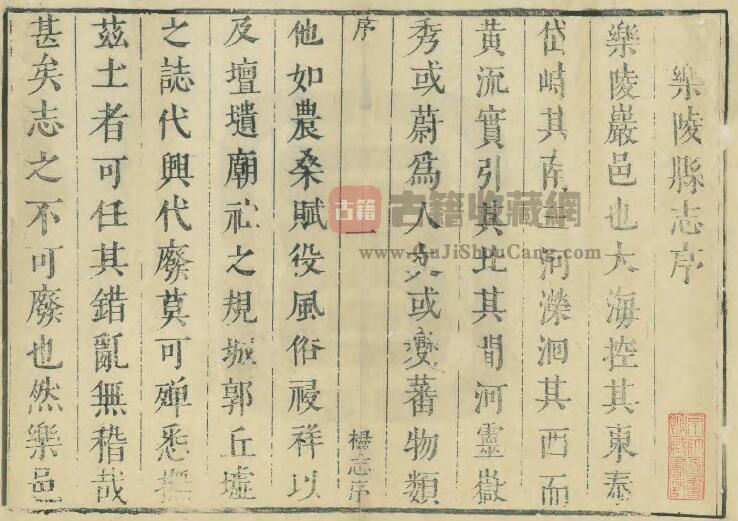 樂陵縣志序
樂陵巖邑也大海控其東泰
岱峙其南河濚洄其西而
黃流實引其北其間河靈嶽
秀或蔚爲人文或變蕃物類
序 一 楊志序
他如農桑賦役風俗祲祥以
及壇壝廟祀之規城郭丘墟
之誌代興代廢莫可殫悉撫
茲土者可任其錯亂無稽哉
甚矣志之不可廢也然樂邑
古籍 古籍收藏網
www.GuJiShouCang.com